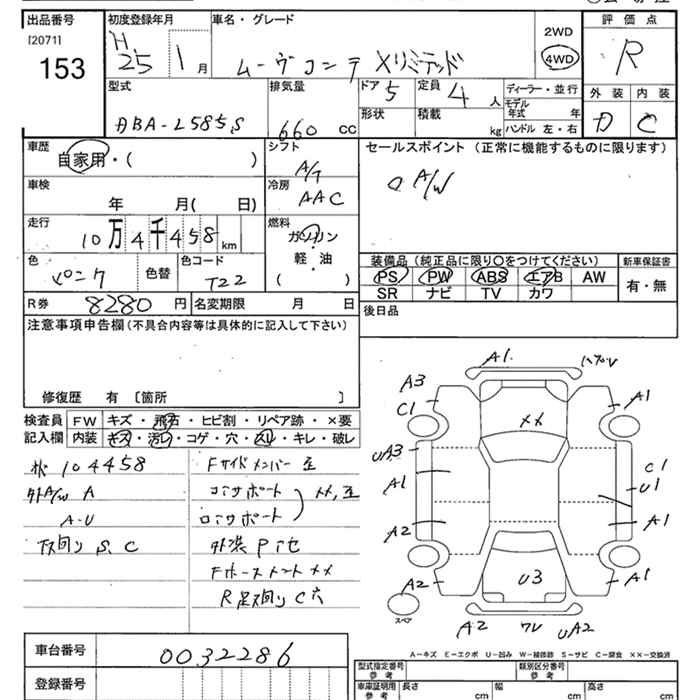 出品番号
[2071]
153
初度登録年月
H.25 1 月
車名・グレード
ムーヴコンテ Xリミテッド
2WD
4WD
評価点
R
外装 内装
D C
型式
DBA-L585S
排気量
660 CC
ドア 5
形状
定員 4 人
積載 kg
ディーラー・並行
モデル年式 年
ハンドル 左・右
車歴
自家用・( )
シフト
A/T
車検
年 月( 日)
冷房
AAC
セールスポイント (正常に機能するものに限ります)
A/W
走行
10 万 4 千 458 km
燃料
ガソリン
軽・油
( )
色
ピンク
色替
色コード
T22
装備品 (純正品に限り○をつけてください)
PS PW ABS エアB AW
SR ナビ TV カワ
新車保証書
有・無
R券 8280 円
名変期限 月 日
後日品
注意事項申告欄 (不具合内容等は具体的に記入して下さい)
修復歴 有 〔箇所 〕
検査員記入欄
FW キズ・飛石・ヒビ割・リペア跡・×要
内装 キズ・汚レ・コゲ・穴・スレ・キレ・破レ
104458
外A/W A
A-U
下回り S.C
Fサイドメンバー
コアサポート
ロアサポート
××
外装 P
××
R足廻り C穴
A1
A3
C1
UA3
A1
A2
A2
××
U3
A1
C1
U1
A1
A1
スペア
A2
UA2
A-キズ E-エクボ U-凹み W-補修跡 S-サビ C-腐食 ××-交換済
車台番号
0032286
登録番号
型式指定番号
参考
類別区分番号
参考
車庫証明用
参考
長さ cm
幅 cm
高さ cm